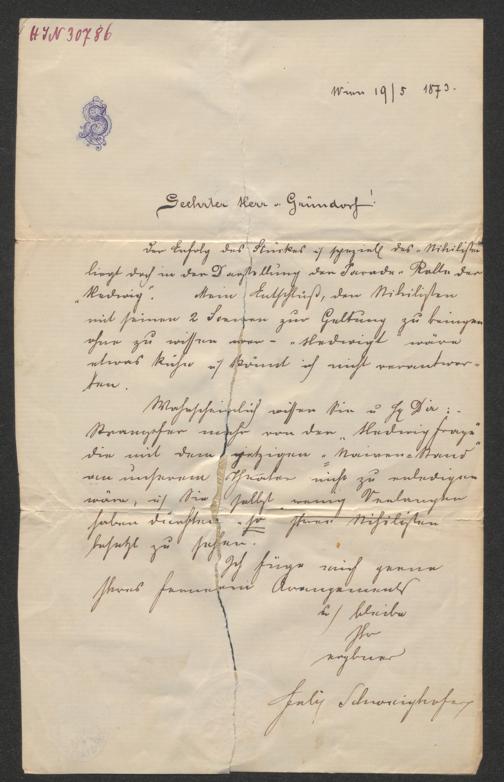 HIN 30786
Wien 19/5 1873.
Geehrter Herr v Gründorf!
Der Erfolg des Stückes u speziell des "Nihilisten
liegt doch in der Darstellung der Parade-Rolle der
"Hedwig". Mein Entschluß, den Nihilisten
mit seinen 2 Scenen zur Geltung zu bringen
ohne zu wissen wer - "Hedwigt" wäre
etwas kühn u könnt ich nicht verantwor-
ten.
Wahrscheinlich wissen Sie u H Dir:
Strampfer mehr von der "Hedwigfrage"
die mit dem jetzigen "Naiven-Stand"
an unserem Theater nicht zu erledigen
wäre, u Sie selbst wenig Verlangen
haben dürften so Ihren Nihilisten
besetzt zu sehen.
Ich füge mich gerne
Ihres ferneren Arrangements
u bleibe
Ihr
ergbner
Felix Schweighofer